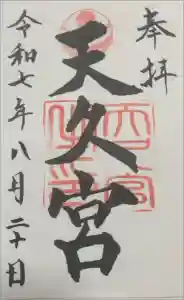 奉拝
天久宮
令和七年八月二十日